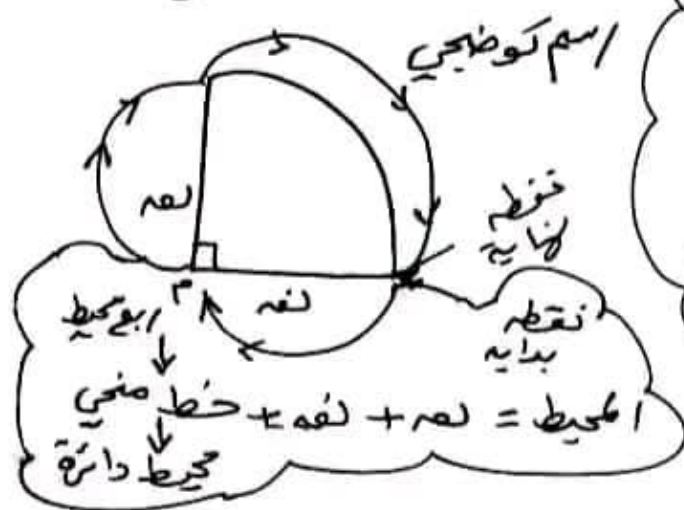 رسم توضيحي
نقطه
نهايه
نقطه
بدايه
نصه
نصه
م
ربع محيط
المحيط = نصه + نصه + خط منحني
محيط دائرة